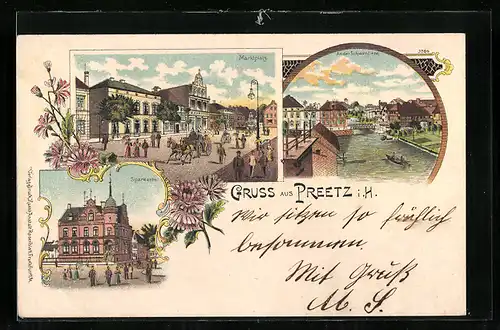 Marktplatz
An der Schwentine
Sparkasse
GRUSS AUS PREETZ i. H.
Wir sitzen so fröhlich
beisammen.
Mit Gruß
M. S.